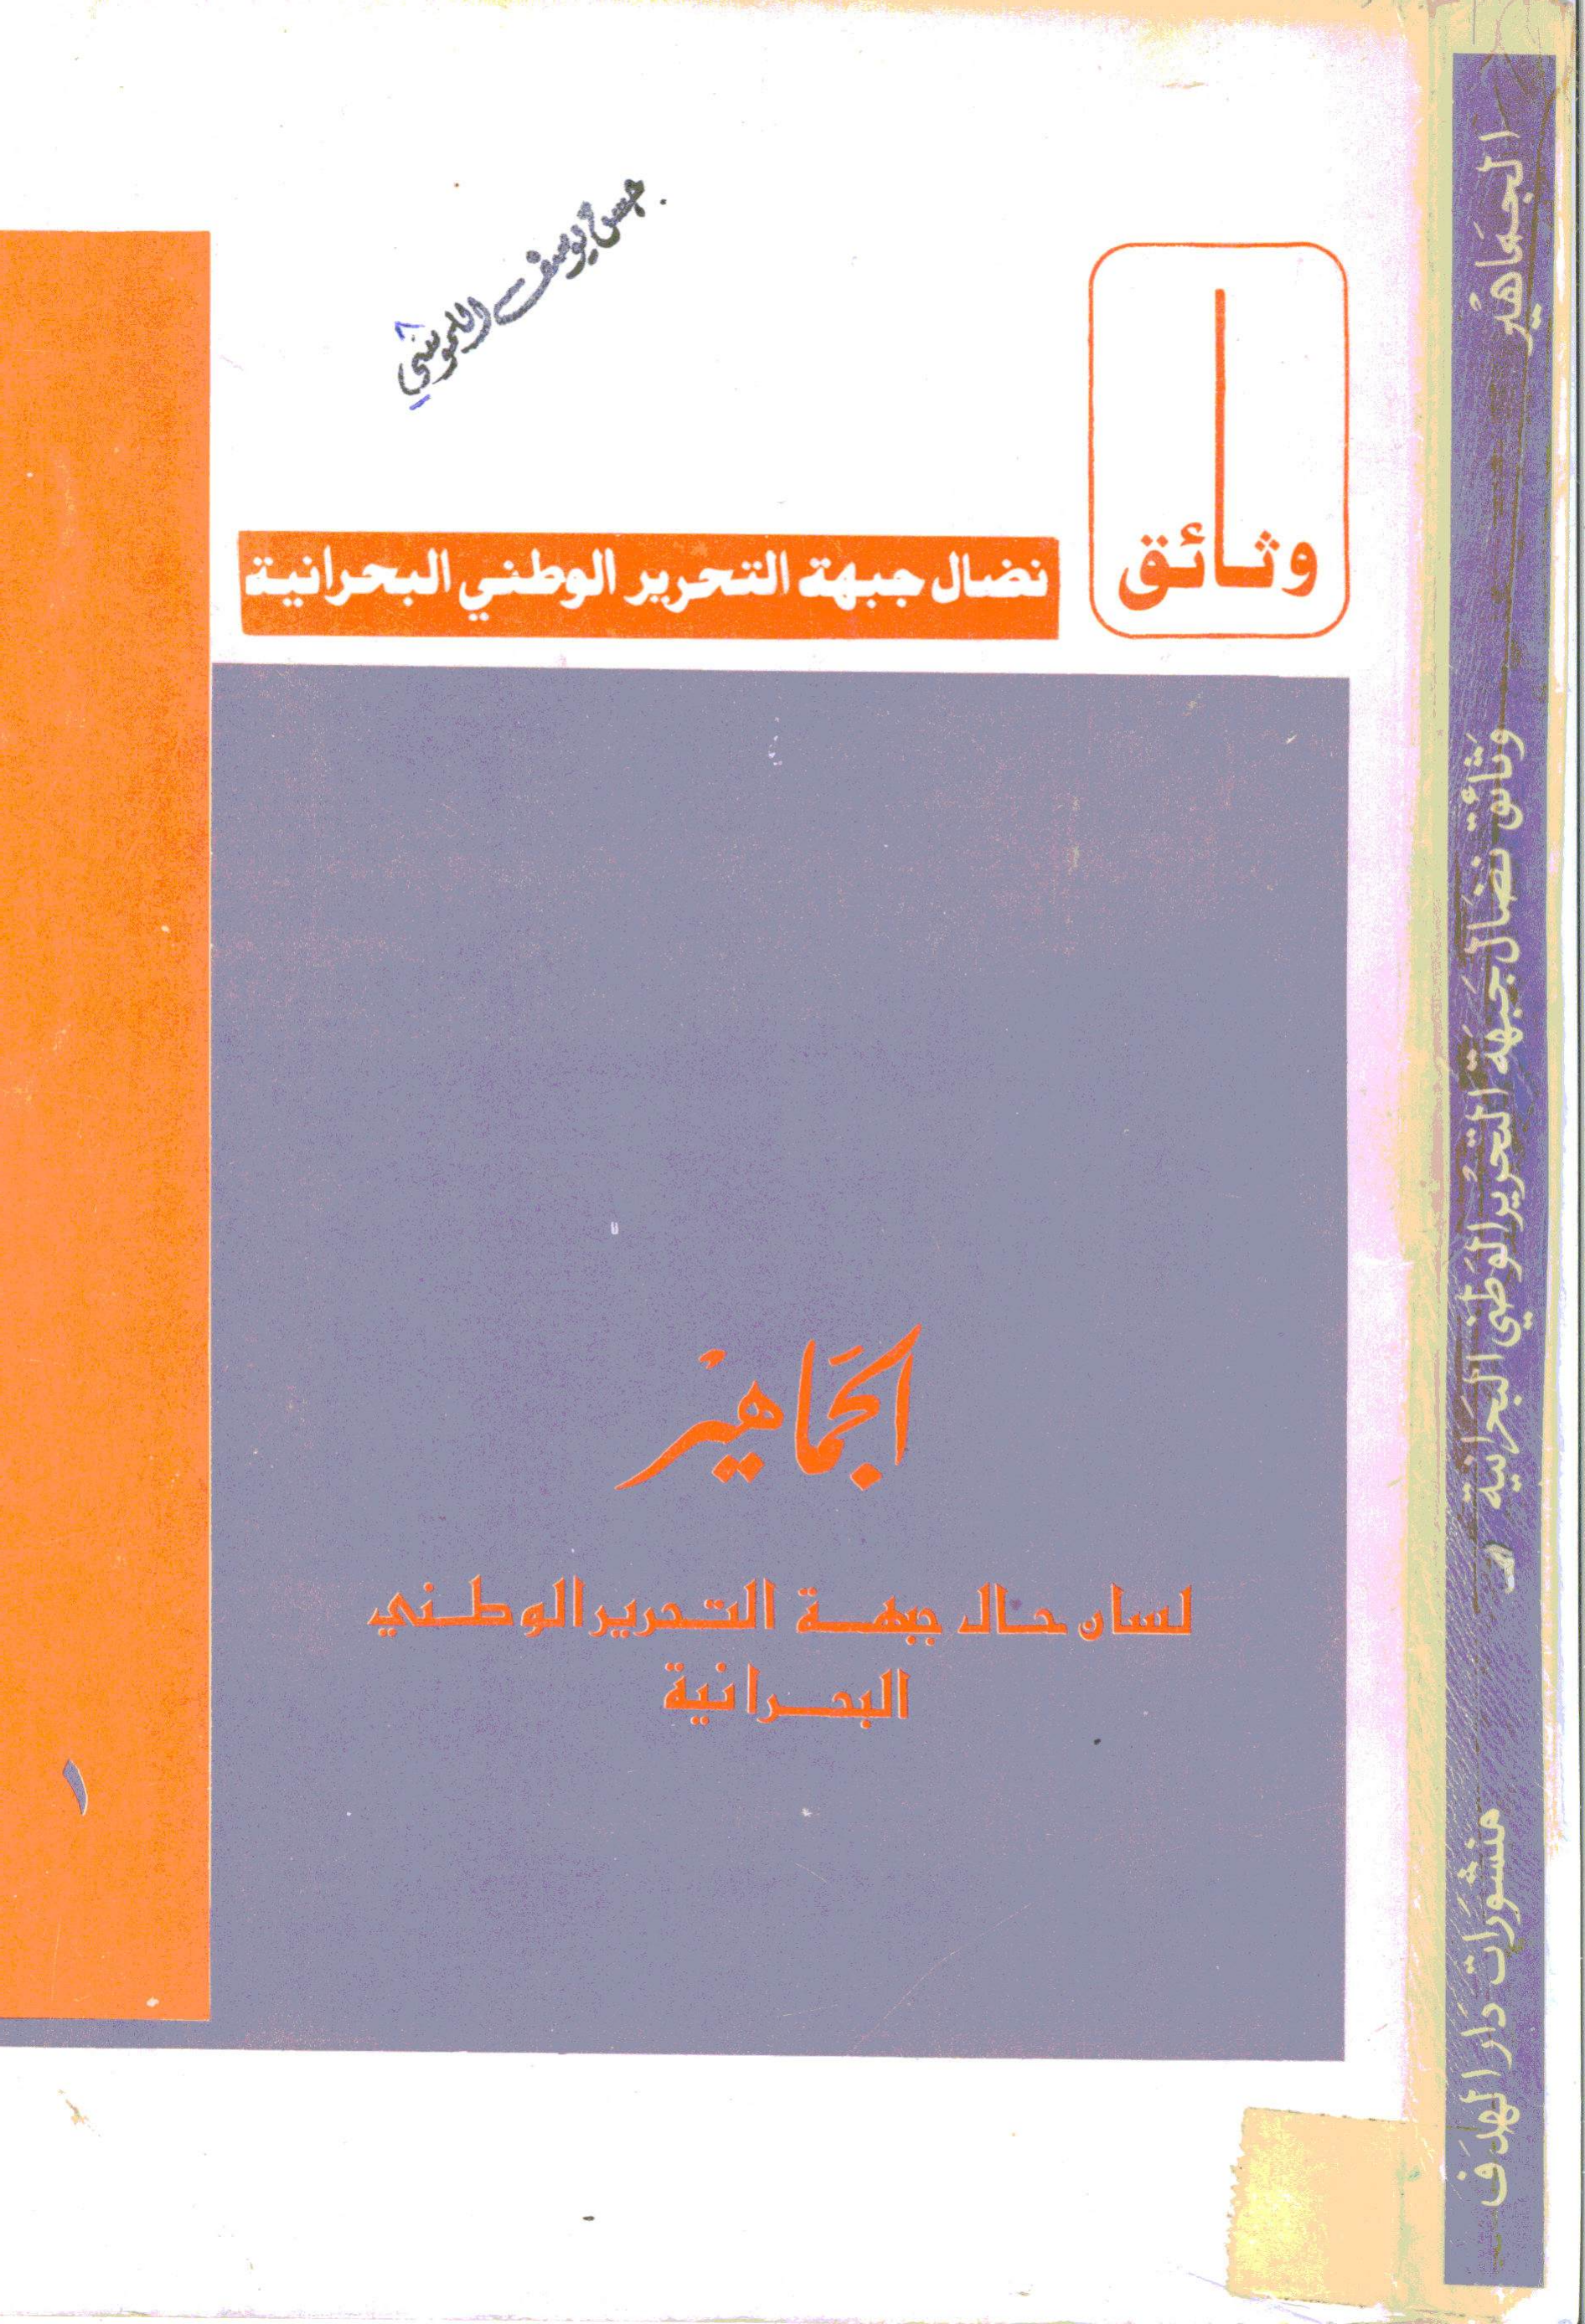 حسن يوسف
وثائق
نضال جبهة التحرير الوطني البحرانية
الجماهير
لسان حال جبهة التحرير الوطني
البحرانية
١
الجماهير
وثائق نضال جبهة التحرير الوطني البحرانية
منشورات دار الهدف